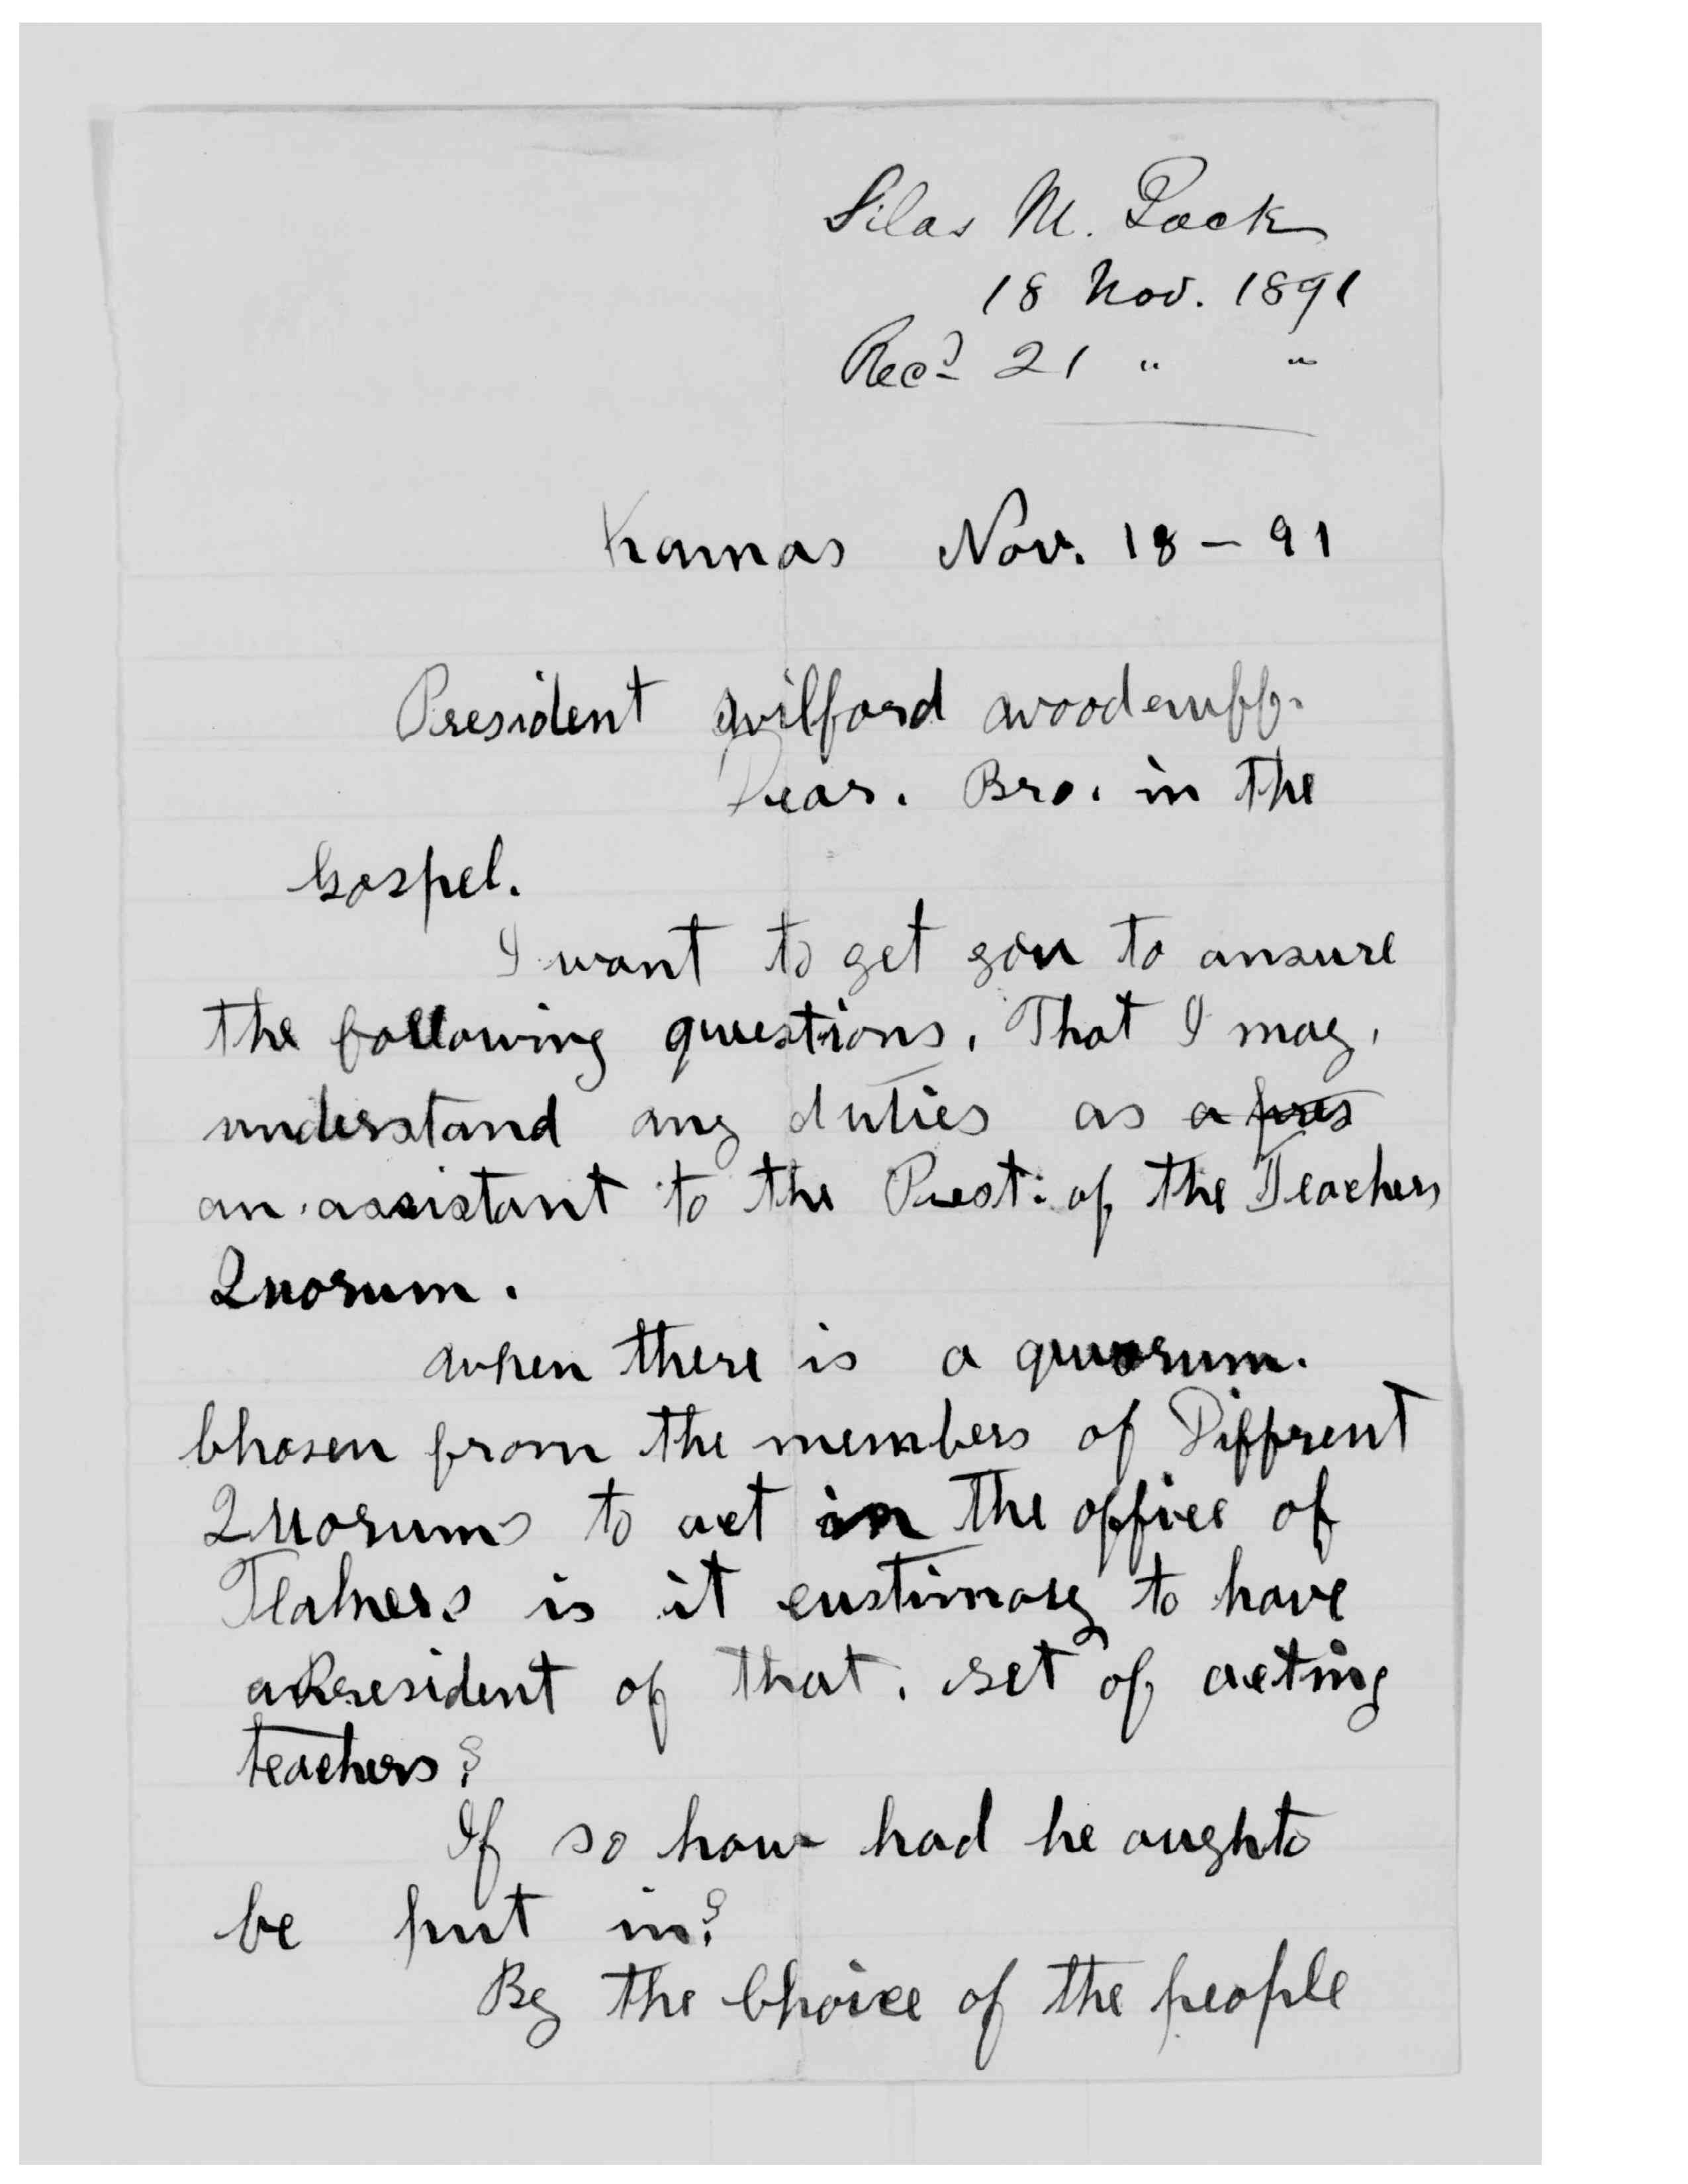 Silas M. Pack
18 Nov. 1891
Recd 21 " "
Kamas Nov. 18 - 91
President Wilford Woodruff.
Dear. Bro. in the
Gospel.
I want to get you to ansure
the following questions. That I may,
understand my duties as a pres
an assistant to the Prest. of the Teachers
Quorum.
When there is a quorum.
Chosen from the members of Diffrent
Quorums to act in the office of
Teahers is it custimary to have
a President of that. set of acting
teachers?
If so how had he aughto
be put in?
By the Choice of the people